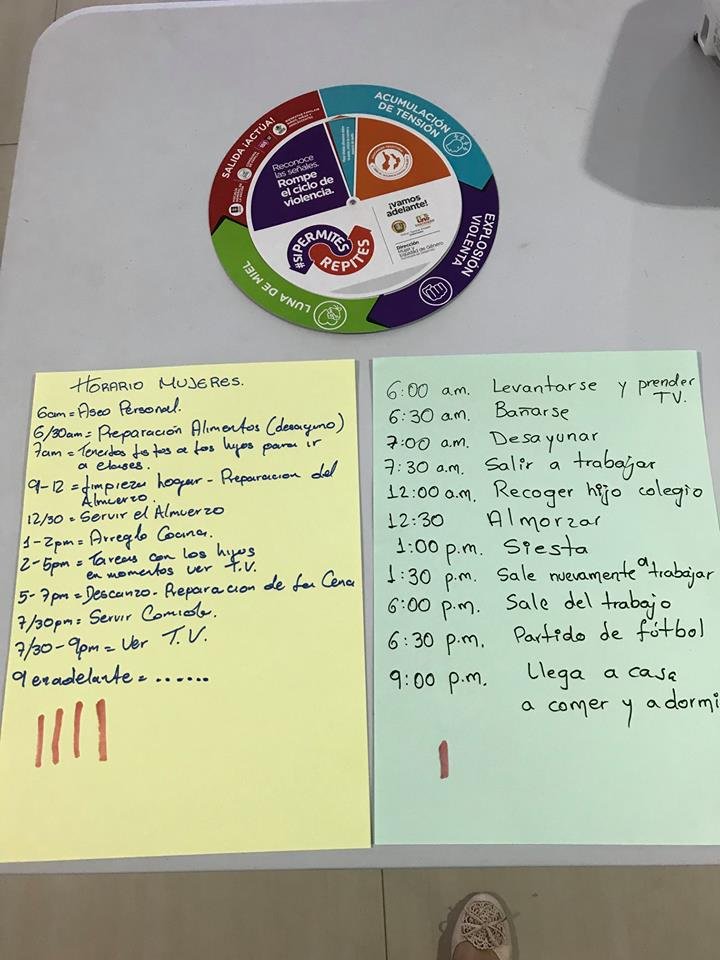 SALIDA ¡ACTÚA!
ACUMULACIÓN
DE TENSIÓN
EXPLOSIÓN
VIOLENTA
LUNA DE MIEL
Reconoce
las señales.
Rompe
el ciclo de
violencia.
¡vamos
adelante!
Dirección
Mujer y
Equidad de Género
#SI PERMITES
REPITES
HORARIO MUJERES.
6am = Aseo Personal.
6/30am = Preparación Alimentos (desayuno)
7am = Tenerlos listos a los hijos para ir
a clases.
9-12 = Limpieza hogar - Preparacion del
Almuerzo.
12/30 = Servir el Almuerzo
1-2pm = Arreglo Cocina.
2-5pm = Tareas con los hijos
en momentos ver T.V.
5-7pm = Descanzo - Preparacion de la Cena
7/30pm = Servir Comida.
7/30-9pm = Ver T.V.
9 en adelante = ......
6:00 am. Levantarse y prender
TV.
6:30 am. Bañarse
7:00 am. Desayunar
7:30 a.m. Salir a trabajar
12:00 a.m. Recoger hijo colegio
12:30 Almorzar
1:00 p.m. Siesta
1:30 p.m. Sale nuevamente a trabajar
6:00 p.m. Sale del trabajo
6:30 p.m. Partido de fútbol
9:00 p.m. llega a casa
a comer y a dormi